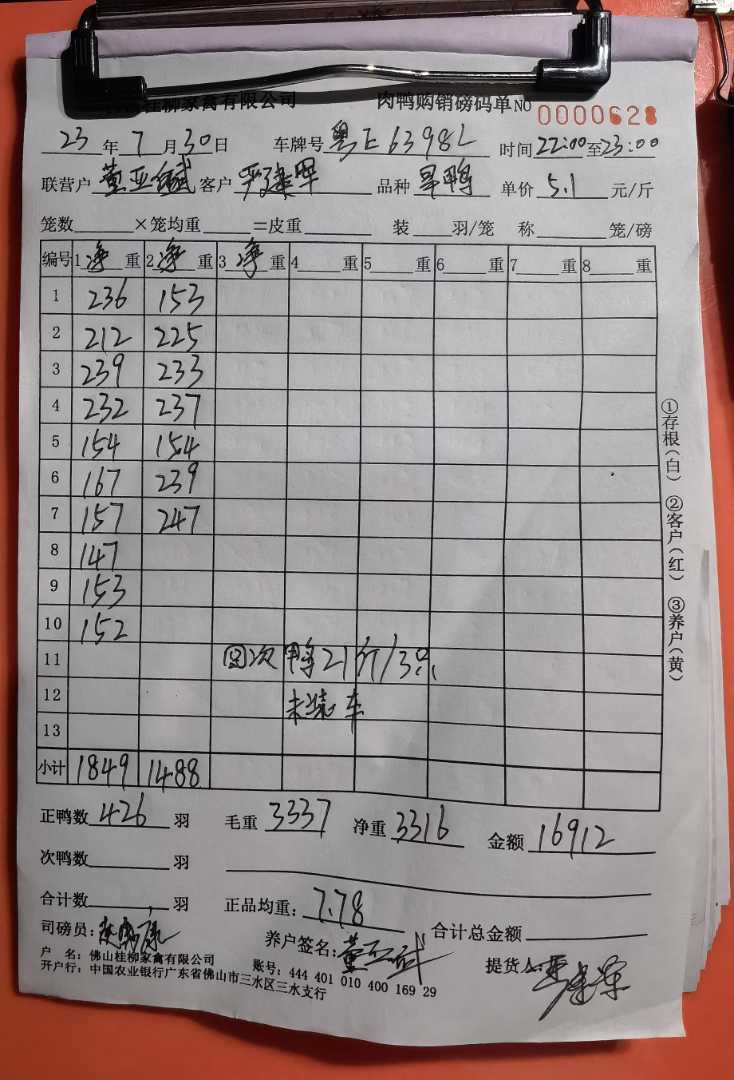 桂柳家禽有限公司 肉鸭购销磅码单 NO 0000628
23年7月30日 车牌号粤E6398L 时间22:00至23:00
联营户董亚斌 客户严建军 品种旱鸭 单价5.1元/斤
笼数×笼均重=皮重 装羽/笼 称笼/磅
编号 1净重 2净重 3净重 4重 5重 6重 7重 8重
1 236 153
2 212 225
3 239 233
4 232 237
5 154 154
6 167 239
7 157 247
8 147
9 153
10 152
11 回次鸭21斤/3只
12 未装车
13
小计 1849 1488
正鸭数426羽 毛重3337 净重3316 金额16912
次鸭数羽
合计数羽 正品均重:7.78
司磅员: 养户签名: 合计总金额
户 名:佛山桂柳家禽有限公司 账号:444 401 010 400 169 29 提货人:
开户行:中国农业银行广东省佛山市三水区三水支行
①存根(白) ②客户(红) ③养户(黄)